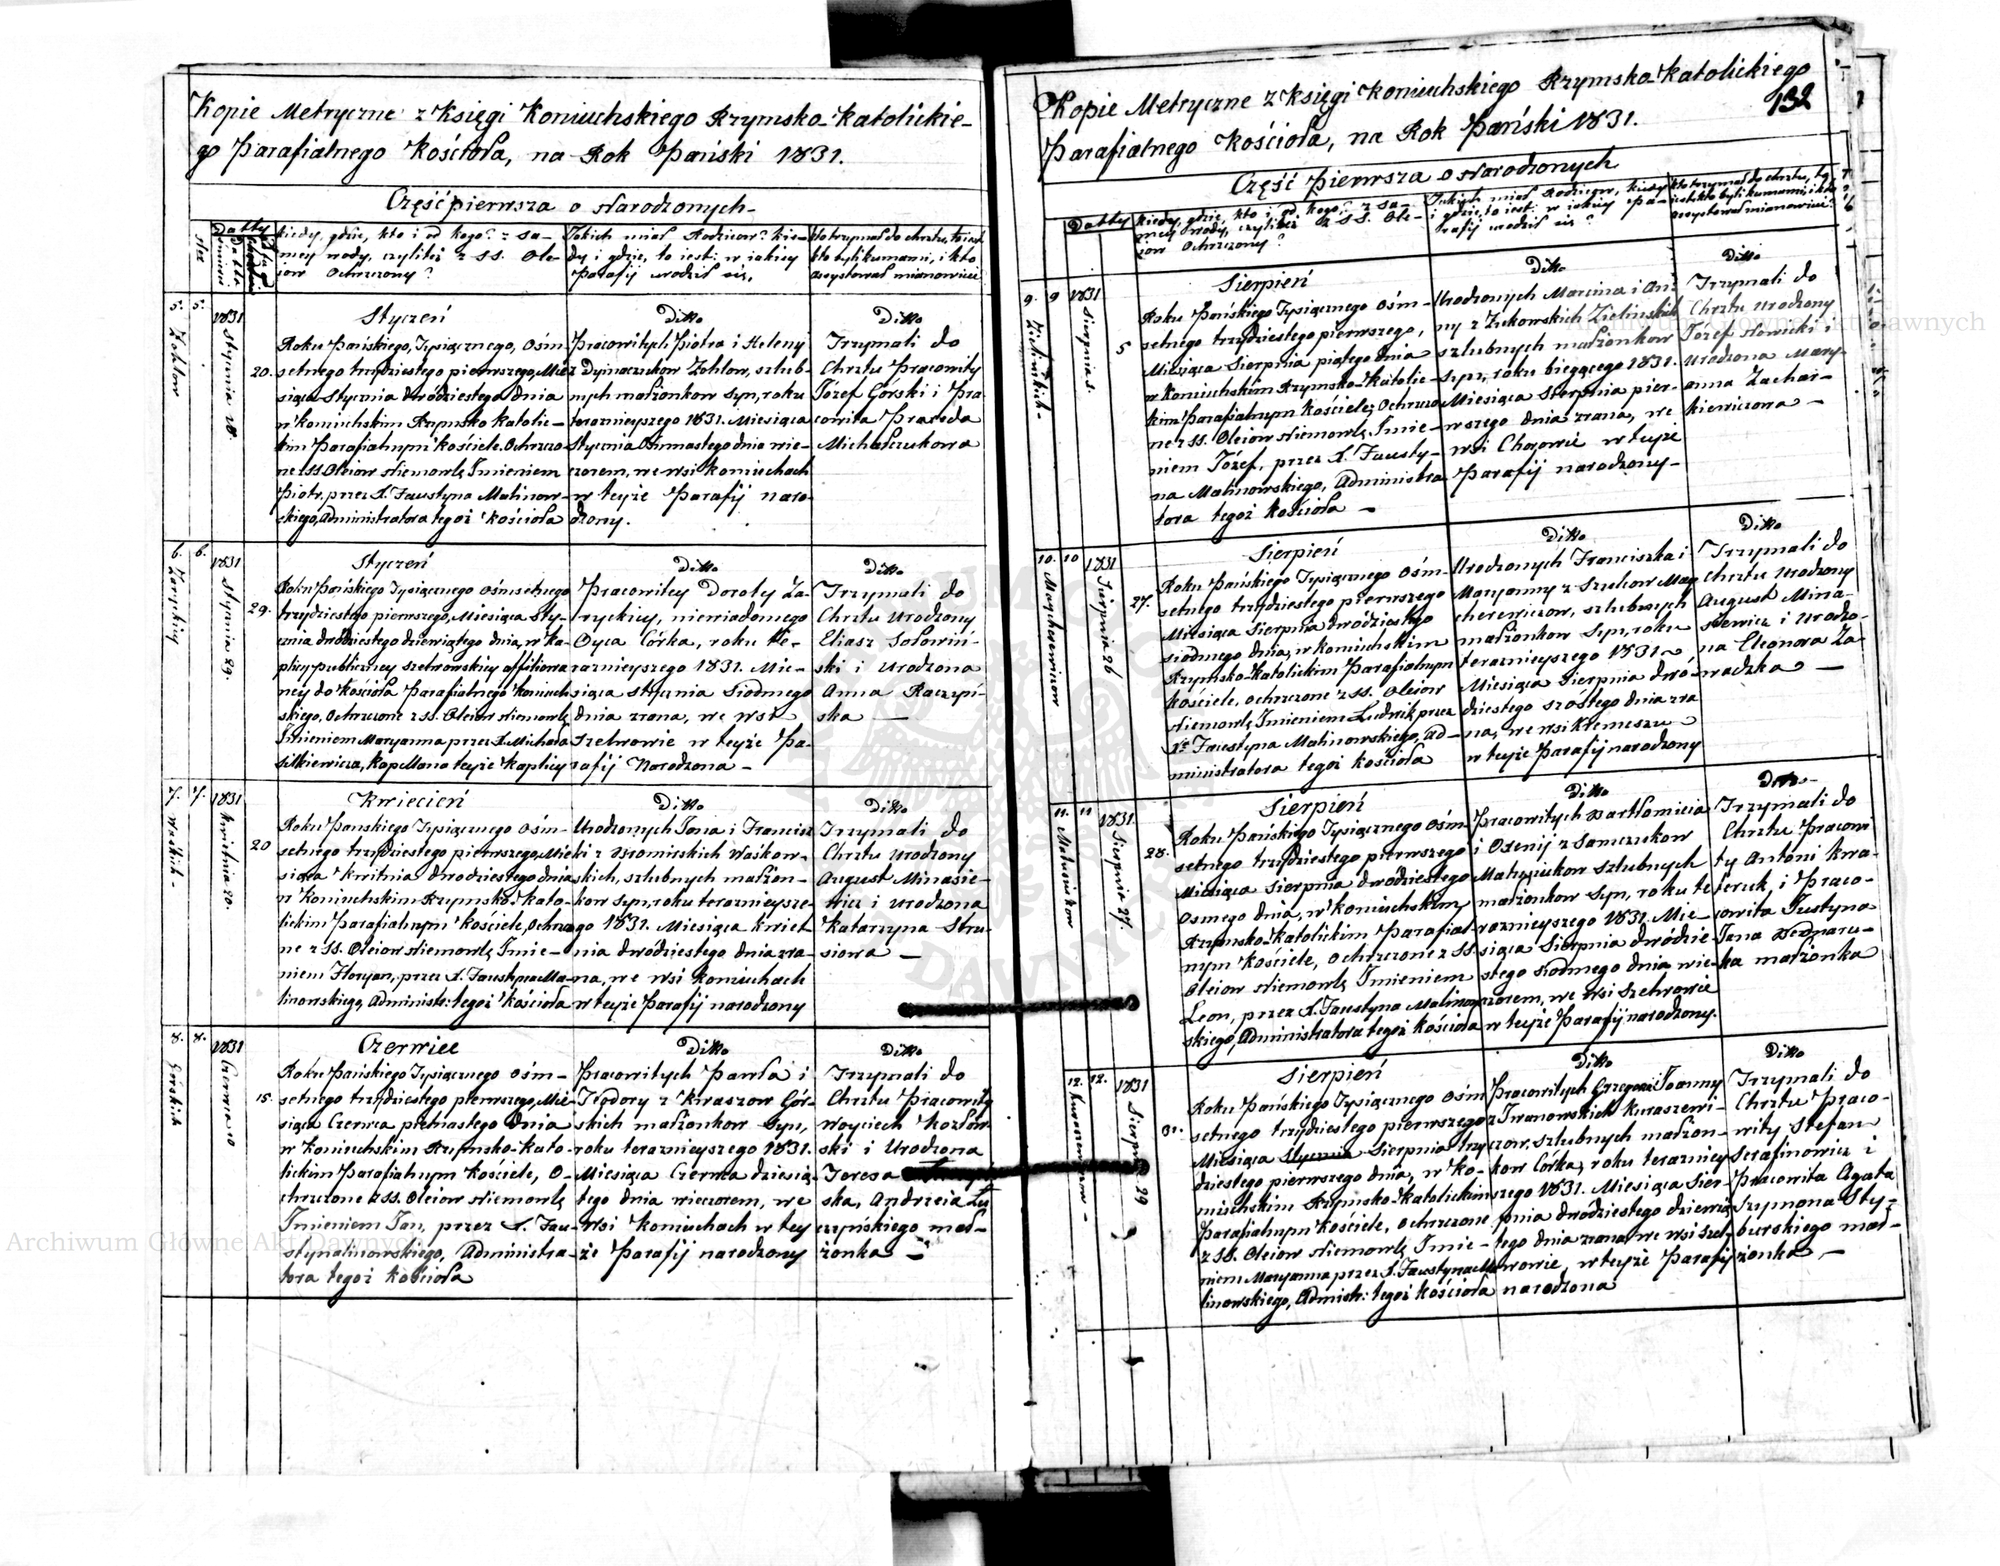 Kopie Metryczne z Księgi Koniuchskiego Rzymsko-Katolickie-
go Parafialnego Kościoła, na Rok Pański 1831.
Część pierwsza o Narodzonych-
Datty
kiedy, gdzie, kto i od kogo? z sa-
mey wody, czyliteż z SS. Ole-
iow Ochrzczony?
Jakich miał Rodzicow? kie-
dy i gdzie, to iest: w iakiey
Parafij urodził się,
kto trzymał do chrztu, to iest
kto byli kumami, i kto
assystował mianowicie
5. 5. 1831 Stycznia 18.
20.
Styczeń
Roku Pańskiego, Tysiącznego, Ośm-
setnego trzydziestego pierwszego, Mie-
siąca Stycznia dwódziestego dnia
w Koniuchskim Rzymsko Katolic-
kim Parafialnym Kościele. Ochrzczo-
ne z SS Oleiow Niemowlę Imieniem
Piotr, przez X. Faustyna Malinow-
skiego, Administratora tegoż Kościoła
Ditto
Pracowitych Piotra i Heleny
z Dyjnaczukow Zohlow, szlub-
nych małżonkow Syn, roku
teraznieyszego 1831. Miesiąca
Stycznia Osmnastego dnia wie-
czorem, we wsi Koniuchach
w teyże Parafij naro-
dzony.
Ditto
Trzymali do
Chrztu Pracowity
Józef Górski i Pra-
cowita Praxeda
Michalczukowa
6. 6. 1831 Stycznia 29.
Zaryckiey
29.
Styczeń
Roku Pańskiego Tysiącznego ośmsetnego
trzydziestego pierwszego, Miesiąca Sty-
cznia dwódziestego dziewiątego dnia, w Ka-
plicy publiczney Szelwowskiey affiliowa-
ney do Kościoła Parafialnego Koniuch-
skiego, Ochrzczone z SS. Oleiow Niemowlę
Imieniem Maryanna przez X. Michała
Milkiewicza, Kapellana teyże Kaplicy
Ditto
Pracowitey Doroty Za-
ryckiey, niewiadomego
Oyca Córka, roku te-
razneyszego 1831. Mie-
siąca Stycznia Siodmego
dnia zrana, we wsi
Szelwowie w teyże Pa-
rafij Narodzona -
Ditto
Trzymali do
Chrztu Urodzony
Eliasz Sołowiń-
ski i Urodzona
Anna Raczyń-
ska —
7. 7. 1831 Kwietnia 20.
Waśkich -
20
Kwiecień
Roku Pańskiego Tysiącznego Ośm-
setnego trzydziestego pierwszego, Mie-
siąca Kwitnia dwodziestego dnia
w Koniuchskim Rzymsko-Kato-
lickim Parafialnym Kościele, Ochrzczo-
ne z SS. Oleiow Niemowlę Imie-
niem Floryan, przez X. Faustyna Ma-
linowskiego, Administr: tegoż Kościoła
Ditto
Urodzonych Jana i Francisz-
ki z Bromirskich Waśkow-
skich, szlubnych małżon-
kow Syn, roku terazneysze-
go 1831. Miesiąca Kwiet-
nia dwódziestego dnia zra-
na, we wsi Koniuchach
w teyże Parafij narodzony
Ditto
Trzymali do
Chrztu Urodzony
August Minasie-
wicz i Urodzona
Katarzyna Stru-
siowa —
8. 8. 1831 Czerwca 10
Górskich
15.
Czerwiec
Roku Pańskiego Tysiącznego Ośm-
setnego trzydziestego pierwszego, Mie-
siąca Czerwca pietnastego Dnia
w Koniuchskim Rzymsko-Kato-
lickim Parafialnym Kościele, O-
chrzczone z SS. Oleiow Niemowlę
Imieniem Jan, przez X. Fau-
styna linowskiego, Administra-
tora tegoż Kościoła
Ditto
Pracowitych Pawła i
Teodory z Kuraszow Gór-
skich małżonkow Syn,
roku terazneyszego 1831.
Miesiąca Czerwca dziesią-
tego dnia wieczorem, we
Wsi Koniuchach w tey-
że Parafij narodzony
Ditto
Trzymali do
Chrztu Pracowity
Woyciech Kozłow-
ski i Urodzona
Teresa
ska, Andrzeia Łę-
czyńskiego mał-
żonka —
Kopie Metryczne z Księgi Koniuchskiego Rzymsko-Katolickiego
132
Parafialnego Kościoła, na Rok Pański 1831.
Część Pierwsza o Narodzonych
Datty
kiedy, gdzie, kto i od kogo? z sa-
mey wody, czyliteż z SS. Ole-
iow Ochrzczony?
Jakich miał Rodzicow, kiedy
i gdzie, to iest: w iakiey Pa-
rafij urodził się?
kto trzymał do chrztu, to
iest kto byli kumami, i kto
assystował mianowicie?
9. 9 1831 Sierpnia 1.
Zielińskich -
5
Sierpień
Roku Pańskiego Tysiącznego Ośm-
setnego trzydziestego pierwszego,
Miesiąca Sierpnia, piątego dnia
w Koniuchskim Rzymsko-Katolic-
kim Parafialnym Kościele, Ochrzczo-
ne z SS. Oleiow Niemowlę Imie-
niem Józef, przez X. Fausty-
na Malinowskiego, Administra-
tora tegoż Kościoła —
Ditto
Urodzonych Marcina i An-
ny z Żukowskich Zielińskich
szlubnych małżonkow
Syn, roku bieżącego 1831.
Miesiąca Sierpnia pier-
wszego dnia zrana, we
wsi Chorowie w teyże
Parafij narodzony-
Ditto
Trzymali do
Chrztu Urodzony
Józef Nowicki i
Urodzona Mary-
anna Zachar-
kiewiczowa —
10. 10 1831 Sierpnia 26
Maycherewiczow
27.
Sierpień
Roku Pańskiego Tysiącznego Ośm-
setnego trzydziestego pierwszego
Miesiąca Sierpnia dwodziestego
siodmego dnia, w Koniuchskim
Rzymsko-Katolickim Parafialnym
Kościele, ochrzczone z SS. Oleiow
Niemowlę Imieniem Ludwik przez
X. Faustyna Malinowskiego, Ad-
ministratora tegoż Kościoła
Ditto
Urodzonych Franciszka i
Maryanny z Szulcow May-
cherewiczow, szlubnych
małżonkow Syn, roku
terazneyszego 1831.
Miesiąca Sierpnia dwó-
dziestego szóstego dnia zra-
na, we wsi Kremeszu
w teyże Parafij narodzony
Ditto
Trzymali do
Chrztu Urodzony
August Mina-
siewicz i Urodzo-
na Eleonora Za-
wadzka —
11. 11 1831 Sierpnia 27.
Matysiukow
28.
Sierpień
Roku Pańskiego Tysiącznego Ośm-
setnego trzydziestego pierwszego
Miesiąca Sierpnia dwódziestego
Osmego dnia, w Koniuchskim
Rzymsko-Katolickim Parafial-
nym Kościele, ochrzczone z SS.
Oleiow Niemowlę Imieniem
Leon, przez X. Faustyna Malinow-
skiego, Administratora tegoż Kościoła
Ditto
Pracowitych Bartłomieia
i Oxeniy z Samczukow
Matysiukow szlubnych
małżonkow Syn, roku te-
razneyszego 1831. Mie-
siąca Sierpnia dwódzie-
stego siodmego dnia wie-
czorem, we wsi Szelwowie
w teyże Parafij narodzony.
Ditto
Trzymali do
Chrztu Pracowi-
ty Antoni Kwa-
teruk, i Praco-
wita Justyna
Jana Bednaru-
ka małżonka
12. 12. 1831 Sierpnia 29
Kuraszewiczow -
31.
Sierpień
Roku Pańskiego Tysiącznego Ośm-
setnego trzydziestego pierwszego
Miesiąca Stycznia Sierpnia trzy-
dziestego pierwszego dnia, w Ko-
niuchskim Rzymsko-Katolickim
Parafialnym Kościele, ochrzczone
z SS. Oleiow Niemowlę Imie-
niem Maryanna przez X. Faustyna Ma-
linowskiego, Admistr: tegoż Kościoła
Ditto
Pracowitych Grzegorza i Joanny
z Iwanowskich Kuraszewi-
czow, szlubnych małżon-
kow Córka, roku terazney-
szego 1831. Miesiąca Sier-
pnia dwodziestego dziewią-
tego dnia zrana, we wsi Szel-
wowie, w teyże Parafij
narodzona
Ditto
Trzymali do
Chrztu Praco-
wity Stefan
Serafinowicz i
Pracowita Agata
Szymona Sty-
burskiego mał-
żonka —
Archiwum Główne Akt Dawnych
Archiwum Główne Akt Dawnych